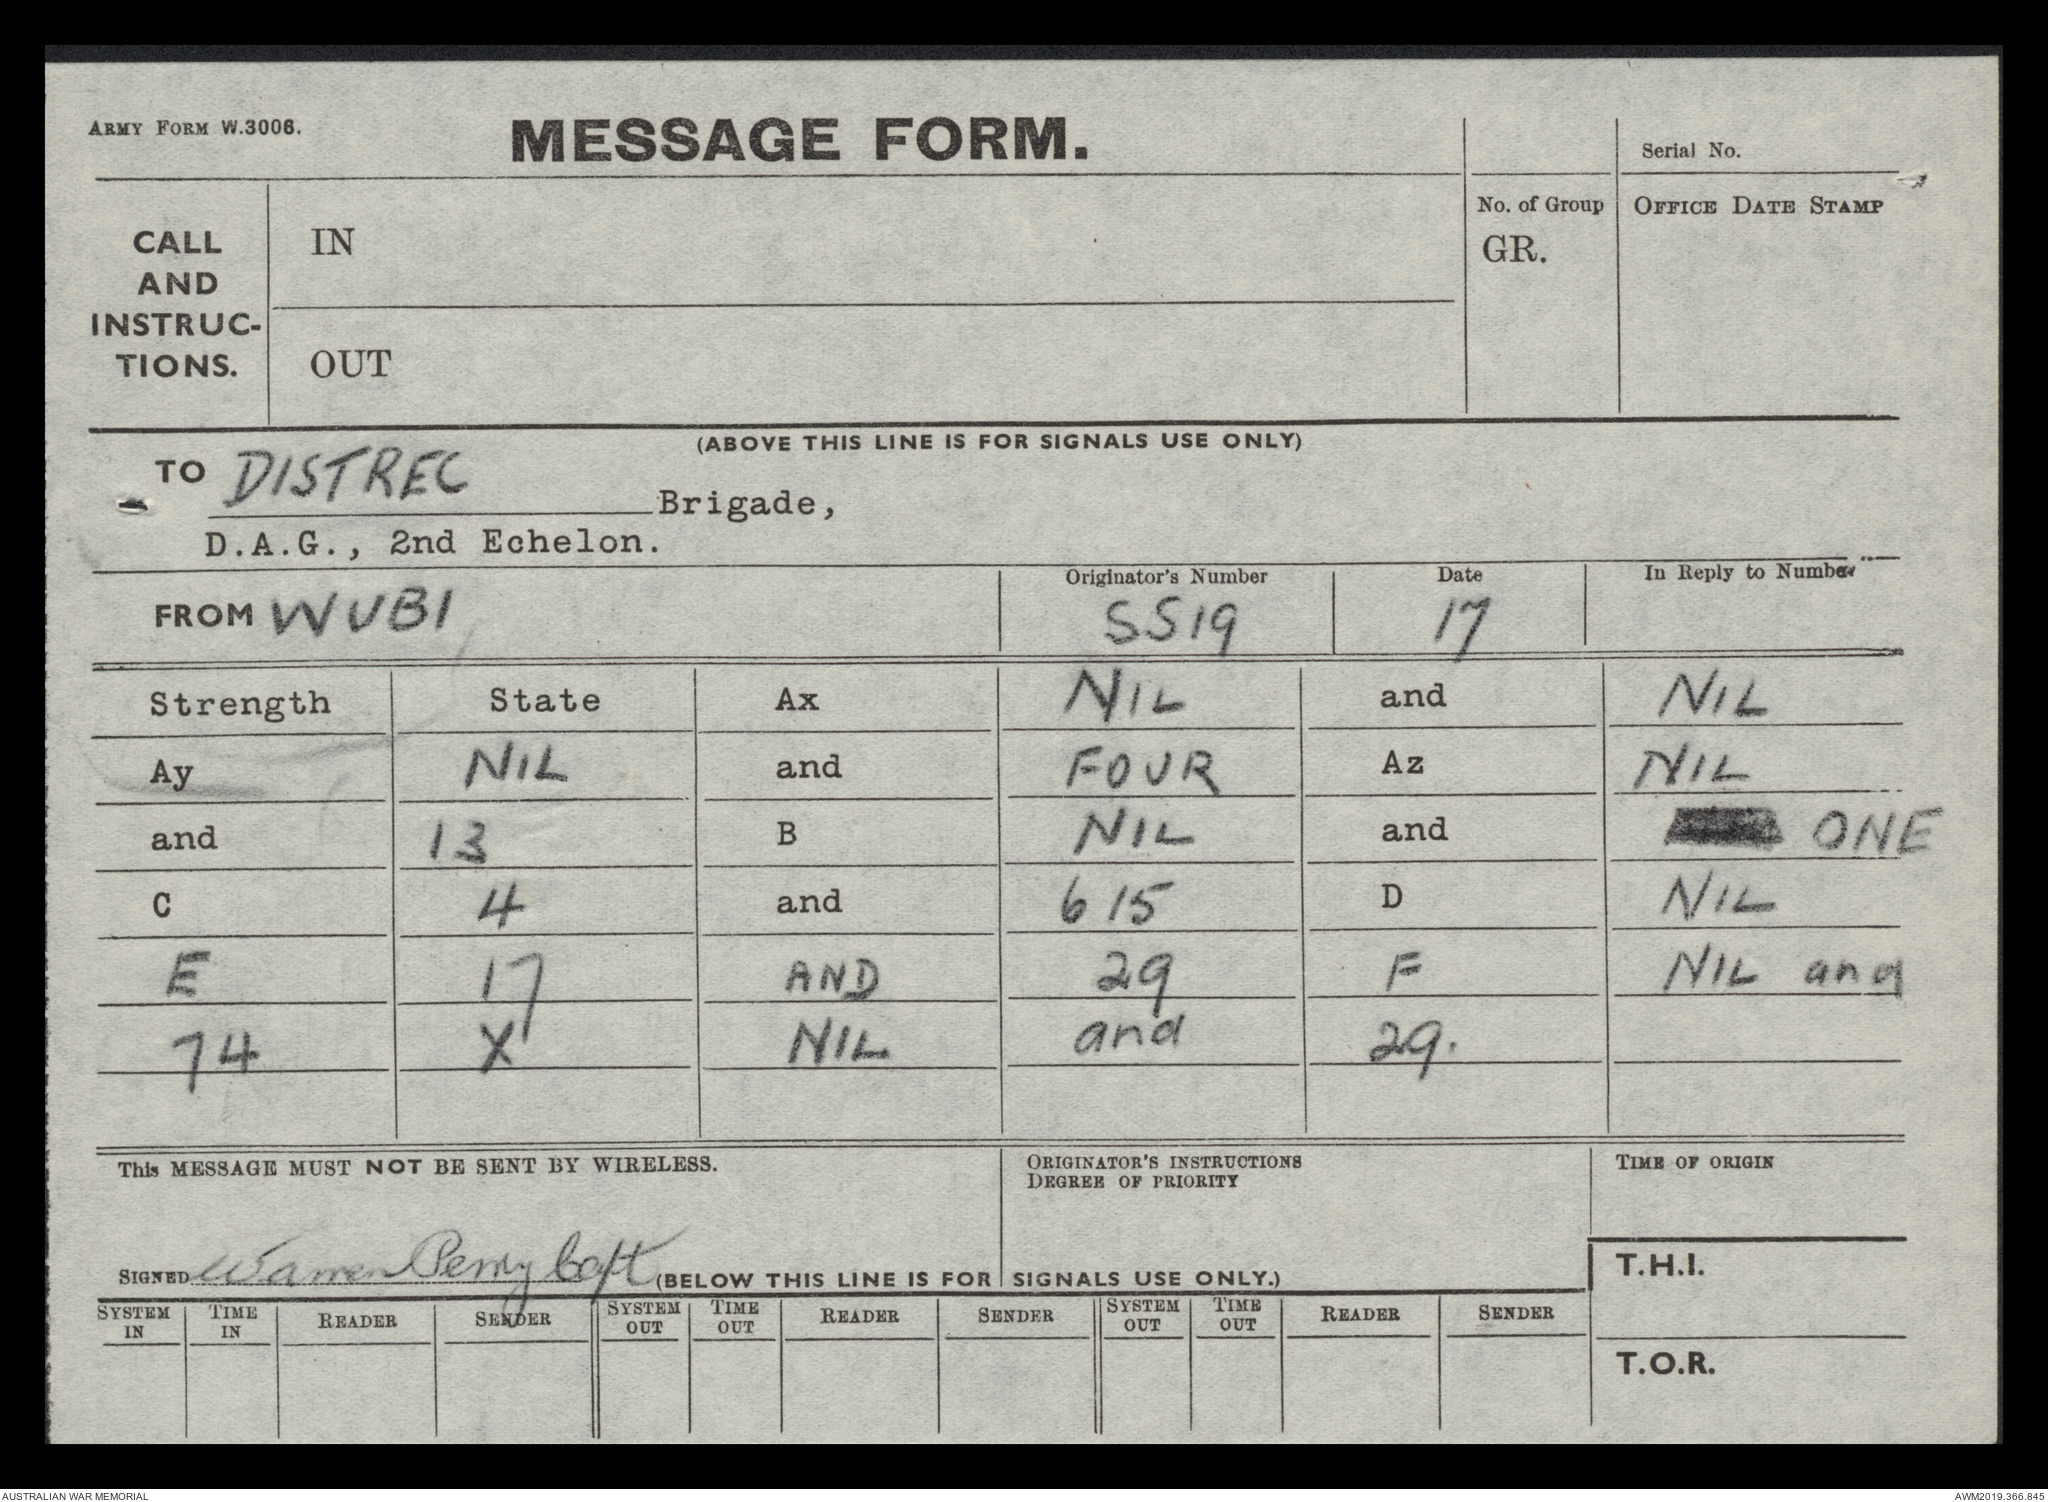 ARMY FORM W.3006.
MESSAGE FORM.
Serial No.
CALL
AND
INSTRUC-
TIONS.
IN
OUT
No. of Group
GR.
OFFICE DATE STAMP
(ABOVE THIS LINE IS FOR SIGNALS USE ONLY)
TO DISTREC Brigade,
D.A.G., 2nd Echelon.
FROM WUBI
Originator's Number
SS19
Date
17
In Reply to Number
Strength State Ax NIL and NIL
Ay NIL and FOUR Az NIL
and 13 B NIL and ONE
C 4 and 615 D NIL
E 17 AND 29 F NIL and
74 X NIL and 29.
This MESSAGE MUST NOT BE SENT BY WIRELESS.
ORIGINATOR'S INSTRUCTIONS
DEGREE OF PRIORITY
TIME OF ORIGIN
SIGNED Warren Perry Capt
(BELOW THIS LINE IS FOR SIGNALS USE ONLY.)
T.H.I.
SYSTEM IN TIME IN READER SENDER SYSTEM OUT TIME OUT READER SENDER SYSTEM OUT TIME OUT READER SENDER
T.O.R.
AUSTRALIAN WAR MEMORIAL
AWM2019.366.845